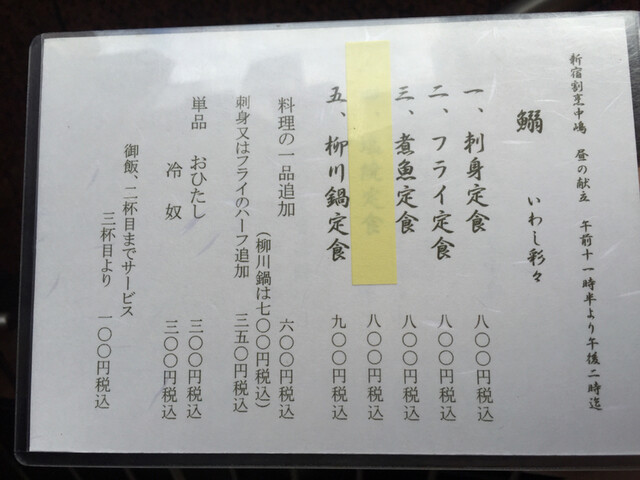 新宿割烹中嶋　昼の献立　午前十一時半より午後二時迄
鰯　いわし彩々
一、刺身定食　八〇〇円税込
二、フライ定食　八〇〇円税込
三、煮魚定食　八〇〇円税込
八〇〇円税込
五、柳川鍋定食　九〇〇円税込
料理の一品追加　六〇〇円税込
（柳川鍋は七〇〇円税込）
刺身又はフライのハーフ追加　三五〇円税込
単品　おひたし　三〇〇円税込
冷奴　三〇〇円税込
御飯、二杯目までサービス
三杯目より　一〇〇円税込